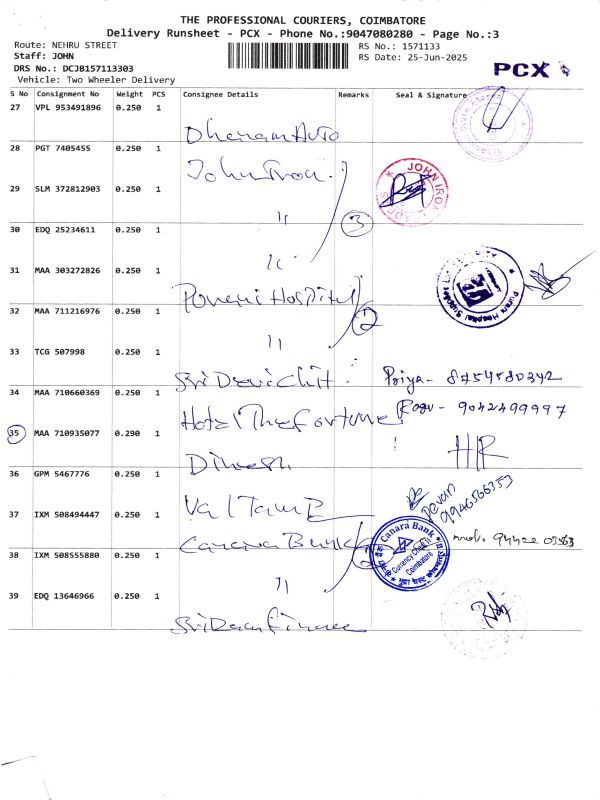 THE PROFESSIONAL COURIERS, COIMBATORE
Delivery Runsheet - PCX - Phone No.:9047080280 - Page No.:3
Route: NEHRU STREET
Staff: JOHN
DRS No.: DCJB157113303
Vehicle: Two Wheeler Delivery
RS No.: 1571133
RS Date: 25-Jun-2025
PCX
S No Consignment No Weight PCS Consignee Details Remarks Seal & Signature
27 VPL 953491896 0.250 1
Dhanam Auto
28 PGT 7405455 0.250 1
John Iron.
29 SLM 372812903 0.250 1
JOHN IRO
"
30 EDQ 25234611 0.250 1
3
"
31 MAA 303272826 0.250 1
Hospital
Purani Hospital Supplies
32 MAA 711216976 0.250 1
2
"
33 TCG 507998 0.250 1
Sri Devi Chit. Priya- 8754580342
34 MAA 710660369 0.250 1
Hotel The Fortune Ragu- 9042499997
35 MAA 710935077 0.290 1
Dinesh
36 GPM 5467776 0.250 1
Devan
9946566353
37 IXM 508494447 0.250 1
Val Tamb
Canara Bank
2
Canara Bank
Currency Chest
Coimbatore
38 IXM 508555880 0.250 1
"
39 EDQ 13646966 0.250 1